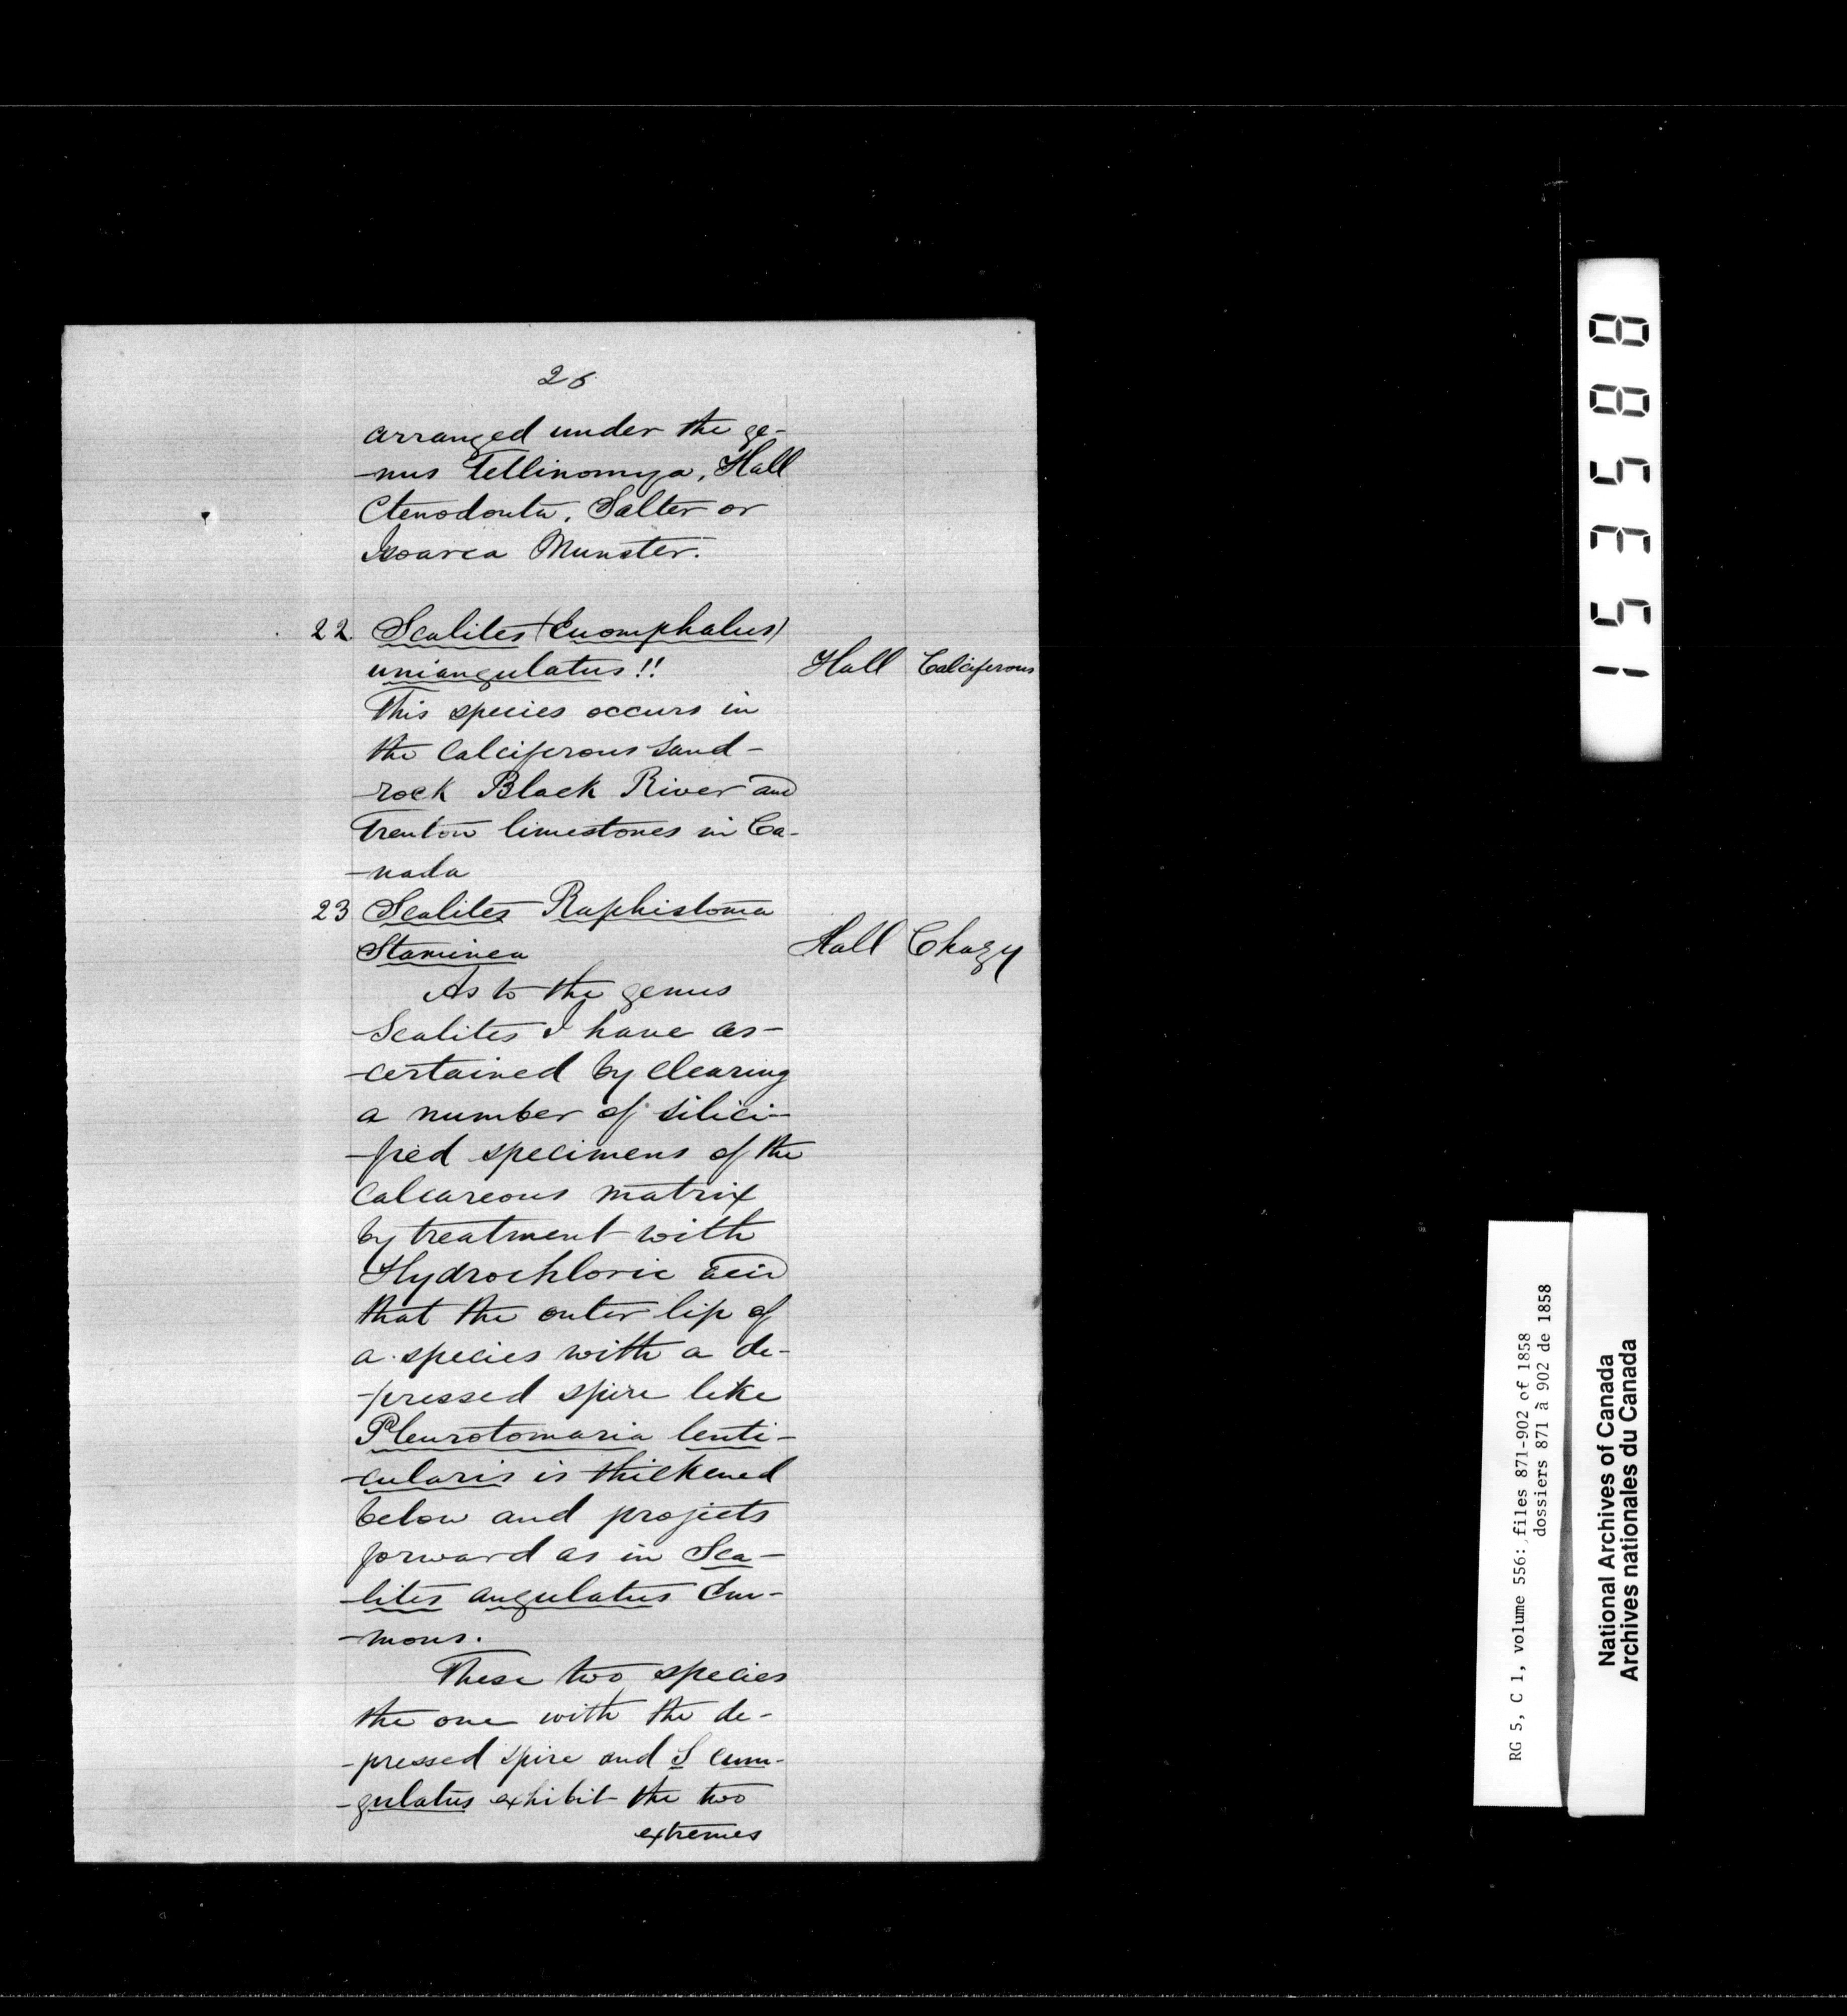 26
arranged under the ge-
-nus Tellinomya, Hall
Ctenodonta, Salter or
Isoarca Munster.
22. Scalites (Euomphalus)
uniangulatus!! Hall Calciferous
This species occurs in
the Calciferous sand-
-rock Black River and
Trenton limestones in Ca-
-nada
23 Scalites Raphistoma
Staminea Hall Chazy
As to the genus
Scalites I have as-
-certained by clearing
a number of silici-
-fied specimens of the
Calcareous matrix
by treatment with
Hydrochloric acid
that the outer lip of
a species with a de-
-pressed spire like
Pleurotomaria lenti-
-cularis is thickened
below and projects
forward as in Sca-
-lites angulatus Em-
-mons.
These two species
the one with the de-
-pressed spire and S
-gulatus exhibit the two
extremes
153588
RG 5, C 1, volume 556: files 871-902 of 1858
dossiers 871 à 902 de 1858
National Archives of Canada
Archives nationales du Canada